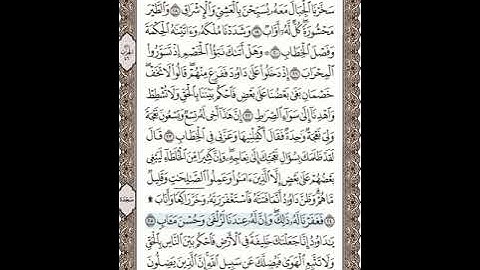 سَخَّرْنَا ٱلْجِبَالَ مَعَهُۥ يُسَبِّحْنَ بِٱلْعَشِىِّ وَٱلْإِشْرَاقِ ١٨ وَٱلطَّيْرَ
مَحْشُورَةً كُلٌّ لَّهُۥٓ أَوَّابٌ ١٩ وَشَدَدْنَا مُلْكَهُۥ وَءَاتَيْنَٰهُ ٱلْحِكْمَةَ
وَفَصْلَ ٱلْخِطَابِ ٢٠ وَهَلْ أَتَىٰكَ نَبَؤُا۟ ٱلْخَصْمِ إِذْ تَسَوَّرُوا۟
ٱلْمِحْرَابَ ٢١ إِذْ دَخَلُوا۟ عَلَىٰ دَاوُۥدَ فَفَزِعَ مِنْهُمْ قَالُوا۟ لَا تَخَفْ
خَصْمَانِ بَغَىٰ بَعْضُنَا عَلَىٰ بَعْضٍ فَٱحْكُم بَيْنَنَا بِٱلْحَقِّ وَلَا تُشْطِطْ
وَٱهْدِنَآ إِلَىٰ سَوَآءِ ٱلصِّرَٰطِ ٢٢ إِنَّ هَٰذَآ أَخِى لَهُۥ تِسْعٌ وَتِسْعُونَ نَعْجَةً
وَلِىَ نَعْجَةٌ وَٰحِدَةٌ فَقَالَ أَكْفِلْنِيهَا وَعَزَّنِى فِى ٱلْخِطَابِ ٢٣ قَالَ
لَقَدْ ظَلَمَكَ بِسُؤَالِ نَعْجَتِكَ إِلَىٰ نِعَاجِهِۦ وَإِنَّ كَثِيرًا مِّنَ ٱلْخُلَطَآءِ لَيَبْغِى
بَعْضُهُمْ عَلَىٰ بَعْضٍ إِلَّا ٱلَّذِينَ ءَامَنُوا۟ وَعَمِلُوا۟ ٱلصَّٰلِحَٰتِ وَقَلِيلٌ
مَّا هُمْ وَظَنَّ دَاوُۥدُ أَنَّمَا فَتَنَّٰهُ فَٱسْتَغْفَرَ رَبَّهُۥ وَخَرَّ رَاكِعًا وَأَنَابَ ۩
٢٤ فَغَفَرْنَا لَهُۥ ذَٰلِكَ وَإِنَّ لَهُۥ عِندَنَا لَزُلْفَىٰ وَحُسْنَ مَـَٔابٍ ٢٥
يَٰدَاوُۥدُ إِنَّا جَعَلْنَٰكَ خَلِيفَةً فِى ٱلْأَرْضِ فَٱحْكُم بَيْنَ ٱلنَّاسِ بِٱلْحَقِّ
وَلَا تَتَّبِعِ ٱلْهَوَىٰ فَيُضِلَّكَ عَن سَبِيلِ ٱللَّهِ إِنَّ ٱلَّذِينَ يَضِلُّونَ
سجدة